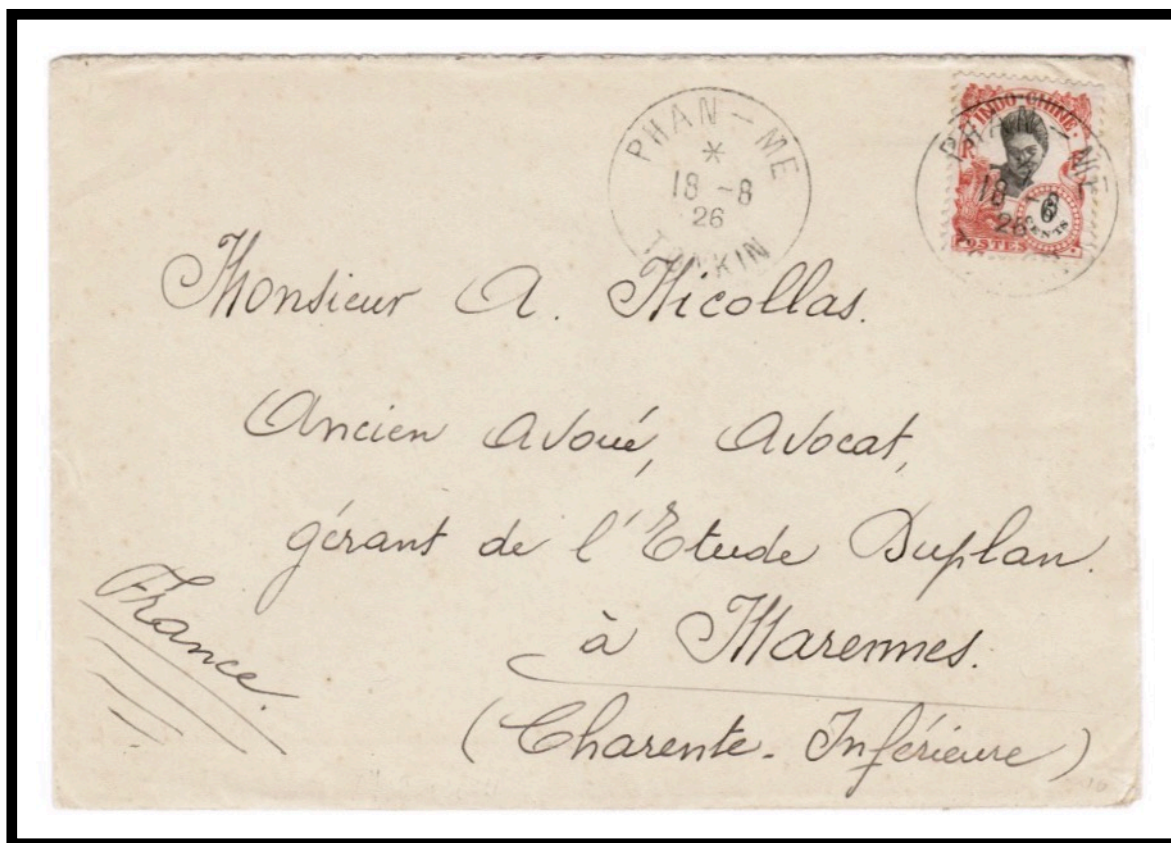 PHAN-ME
*
18-8
26
TONKIN
INDO-CHINE
RF
6
CENTS
POSTES
PHAN-ME
18-8
26
Monsieur A. Nicollas.
Ancien Avoué, Avocat,
gérant de l'Etude Duplan.
à Marennes.
(Charente-Inférieure)
France.